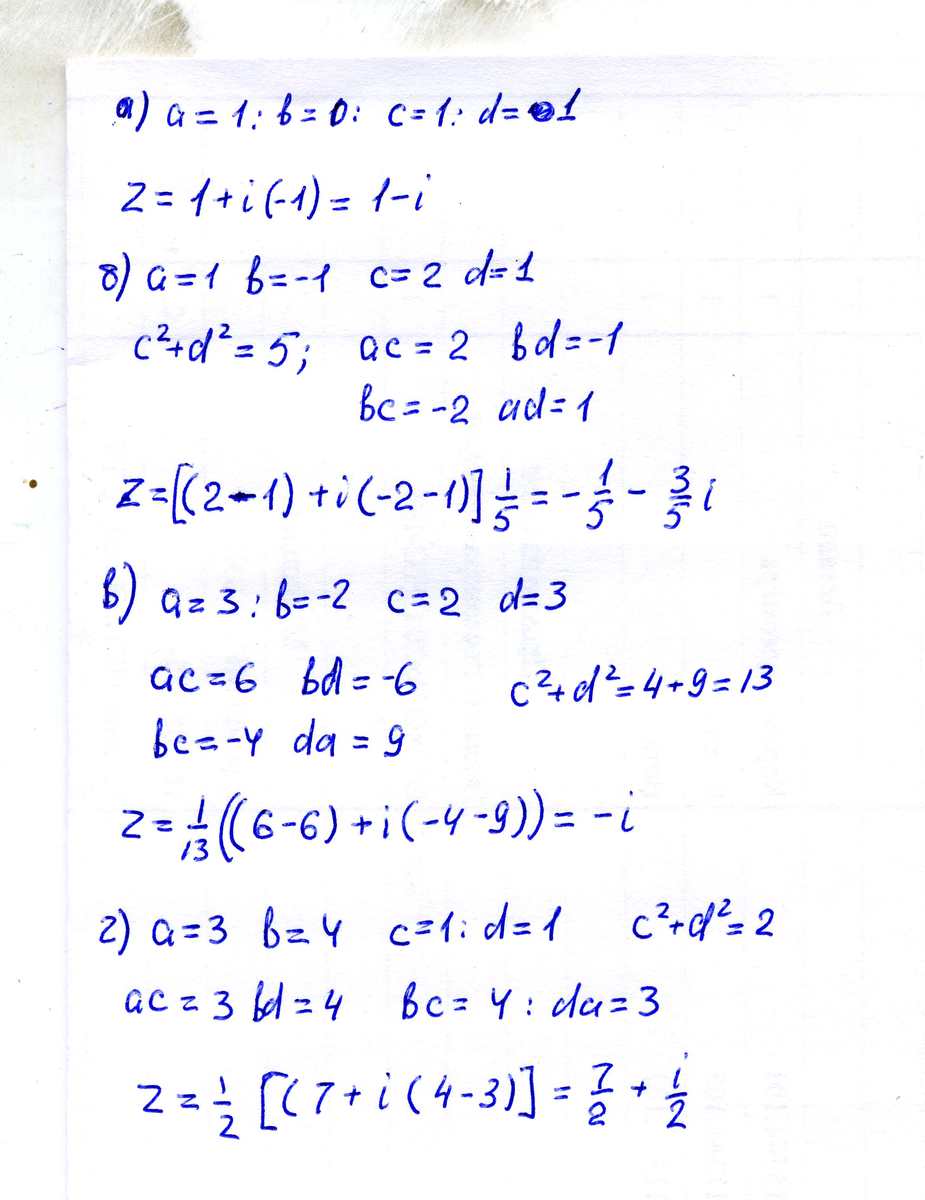 а) a = 1; b = 0; c = 1; d = 1
z = 1 + i (-1) = 1 - i
б) a = 1 b = -1 c = 2 d = 1
c² + d² = 5; ac = 2 bd = -1
bc = -2 ad = 1
z = [(2 - 1) + i (-2 - 1)] 1/5 = - 1/5 - 3/5 i
в) a = 3 ; b = -2 c = 2 d = 3
ac = 6 bd = -6 c² + d² = 4 + 9 = 13
bc = -4 da = 9
z = 1/13 ((6 - 6) + i (-4 - 9)) = - i
г) a = 3 b = 4 c = 1 : d = 1 c² + d² = 2
ac = 3 bd = 4 bc = 4 : da = 3
z = 1/2 [( 7 + i ( 4 - 3)] = 7/2 + i/2